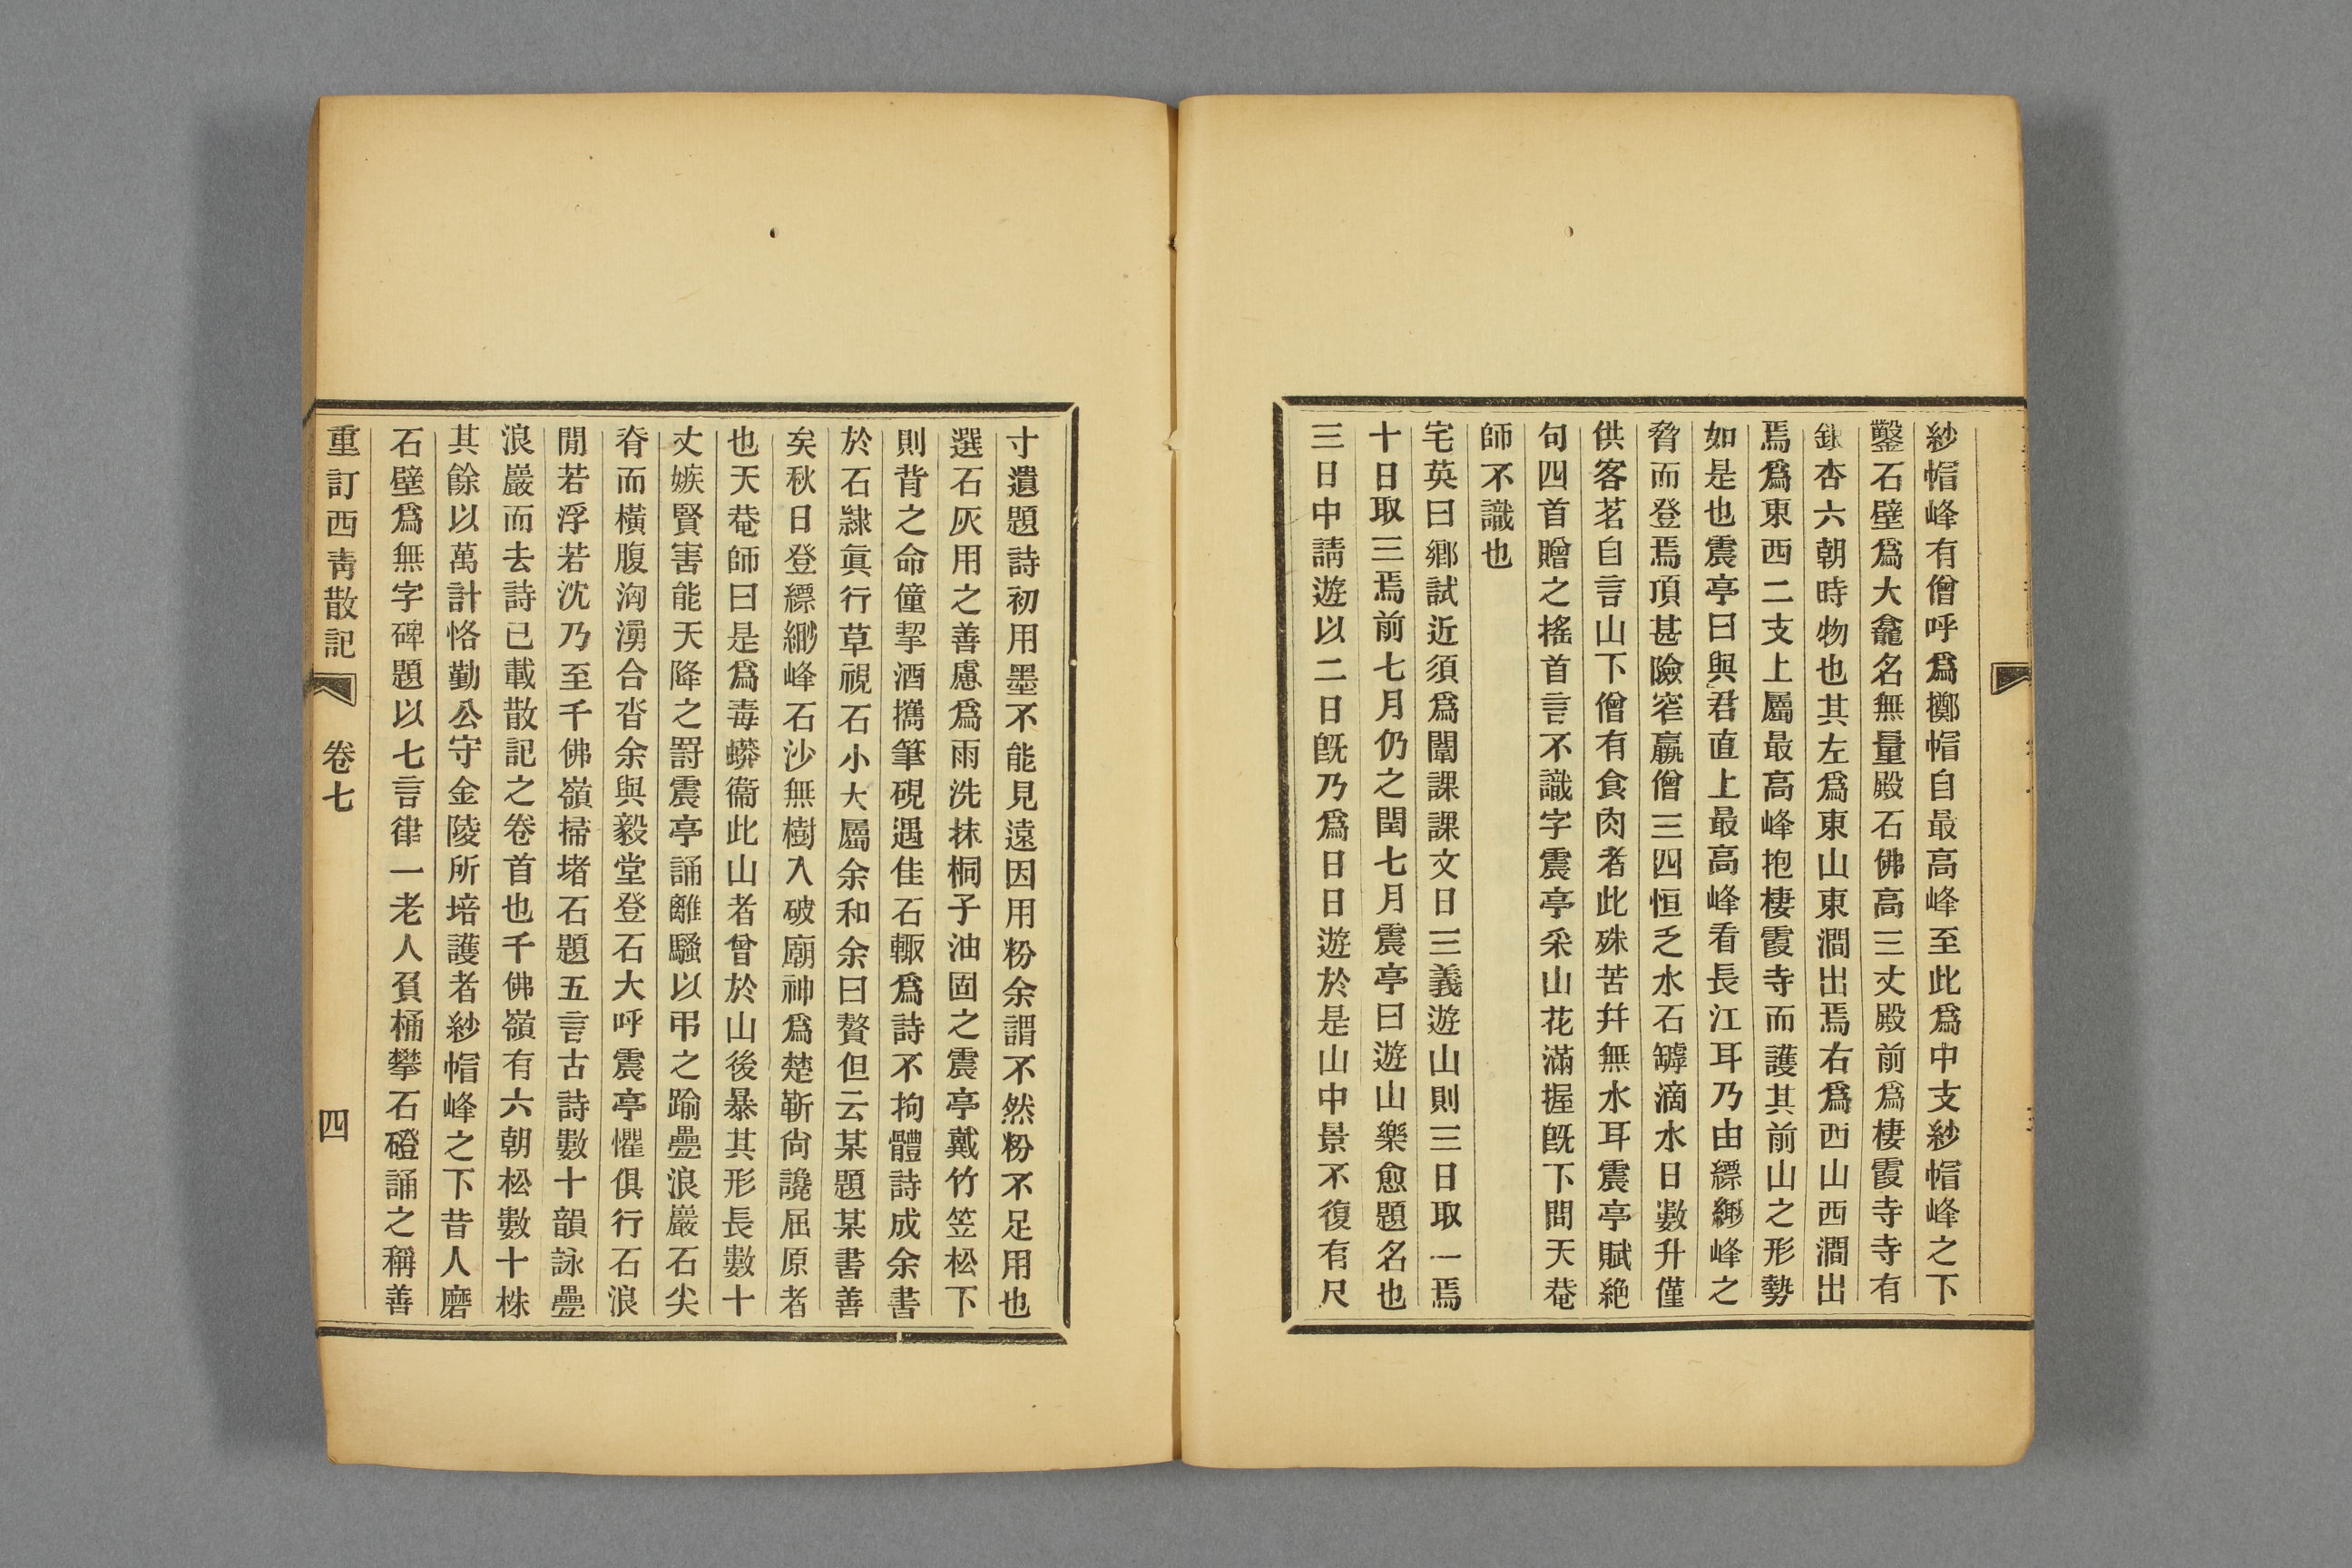 紗帽峰有僧呼爲擲帽自最高峰至此爲中支紗帽峰之下
鑿石壁爲大龕名無量殿石佛高三丈殿前爲棲霞寺寺有
銀杏六朝時物也其左爲東山東澗出焉右爲西山西澗出
焉爲東西二支上屬最高峰抱棲霞寺而護其前山之形勢
如是也震亭曰與君直上最高峰看長江耳乃由縹緲峰之
脅而登焉頂甚險窄羸僧三四恒乏水石罅滴水日數升僅
供客茗自言山下僧有食肉者此殊苦幷無水耳震亭賦絶
句四首贈之搖首言不識字震亭采山花滿握旣下問天菴
師不識也
宅英曰鄉試近須爲闈課課文日三義遊山則三日取一焉
十日取三焉前七月仍之閏七月震亭曰遊山樂愈題名也
三日中請遊以二日旣乃爲日日遊於是山中景不復有尺
寸遺題詩初用墨不能見遠因用粉余謂不然粉不足用也
選石灰用之善慮爲雨洗抹桐子油固之震亭戴竹笠松下
則背之命僮挈酒攜筆硯遇佳石輙爲詩不拘體詩成余書
於石隷眞行草視石小大屬余和余曰贅但云某題某書善
矣秋日登縹緲峰石沙無樹入破廟神爲楚靳尙讒屈原者
也天菴師曰是爲毒蟒衞此山者曾於山後暴其形長數十
丈嫉賢害能天降之罸震亭誦離騷以弔之踰疊浪巖石尖
脊而橫腹洶湧合沓余與毅堂登石大呼震亭懼俱行石浪
閒若浮若沈乃至千佛嶺掃堵石題五言古詩數十韻詠疊
浪巖而去詩已載散記之卷首也千佛嶺有六朝松數十株
其餘以萬計恪勤公守金陵所培護者紗帽峰之下昔人磨
石壁爲無字碑題以七言律一老人負桶攀石磴誦之稱善
重訂西靑散記 卷七 四